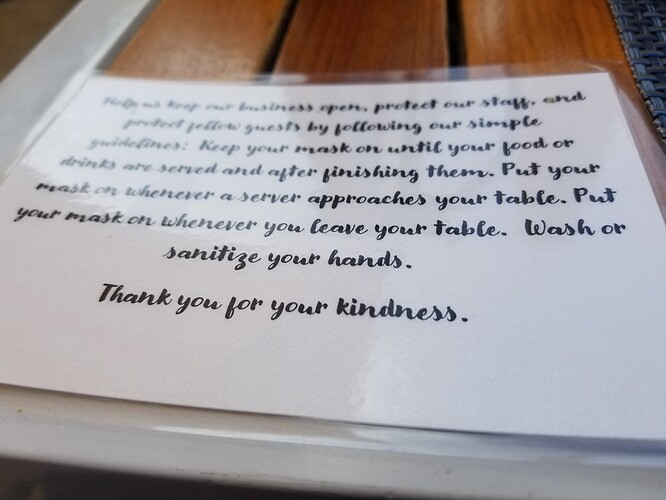 Help us keep our business open, protect our staff, and
protect fellow guests by following our simple
guidelines: Keep your mask on until your food or
drinks are served and after finishing them. Put your
mask on whenever a server approaches your table. Put
your mask on whenever you leave your table. Wash or
sanitize your hands.
Thank you for your kindness.